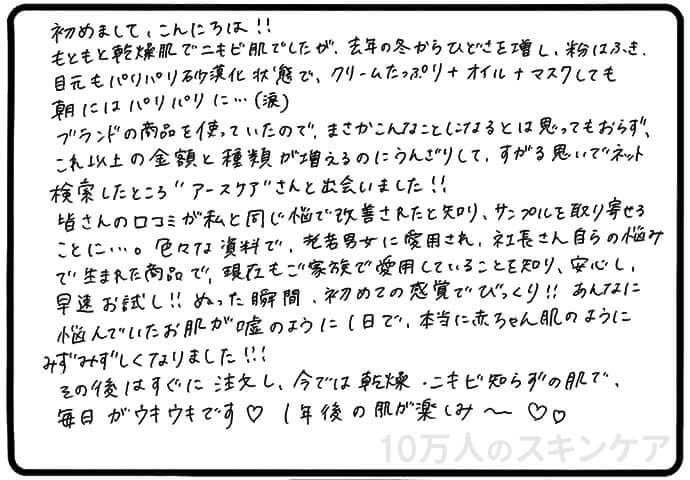 初めまして、こんにちは!!
もともと乾燥肌でニキビ肌でしたが、去年の冬からひどさを増し、粉はふき、
目元もパリパリ砂漠化状態で、クリームたっぷり+オイル+マスクしても
朝にはパリパリに…(涙)
ブランドの商品を使っていたので、まさかこんなことになるとは思ってもおらず、
これ以上の金額と種類が増えるのにうんざりして、すがる思いでネット
検索したところ"アースケア"さんと出会いました!!
皆さんの口コミが私と同じ悩で改善されたと知り、サンプルを取り寄せる
ことに…。色々な資料で、老若男女に愛用され、社長さん自らの悩み
で生まれた商品で、現在もご家族で愛用していることを知り、安心し、
早速お試し!!ぬった瞬間、初めての感覚でびっくり!!あんなに
悩んでいたお肌が嘘のように1日で、本当に赤ちゃん肌のように
みずみずしくなりました!!!
その後はすぐに注文し、今では乾燥・ニキビ知らずの肌で、
毎日がウキウキです♡ 1年後の肌が楽しみ〜♡♡
10万人のスキンケア